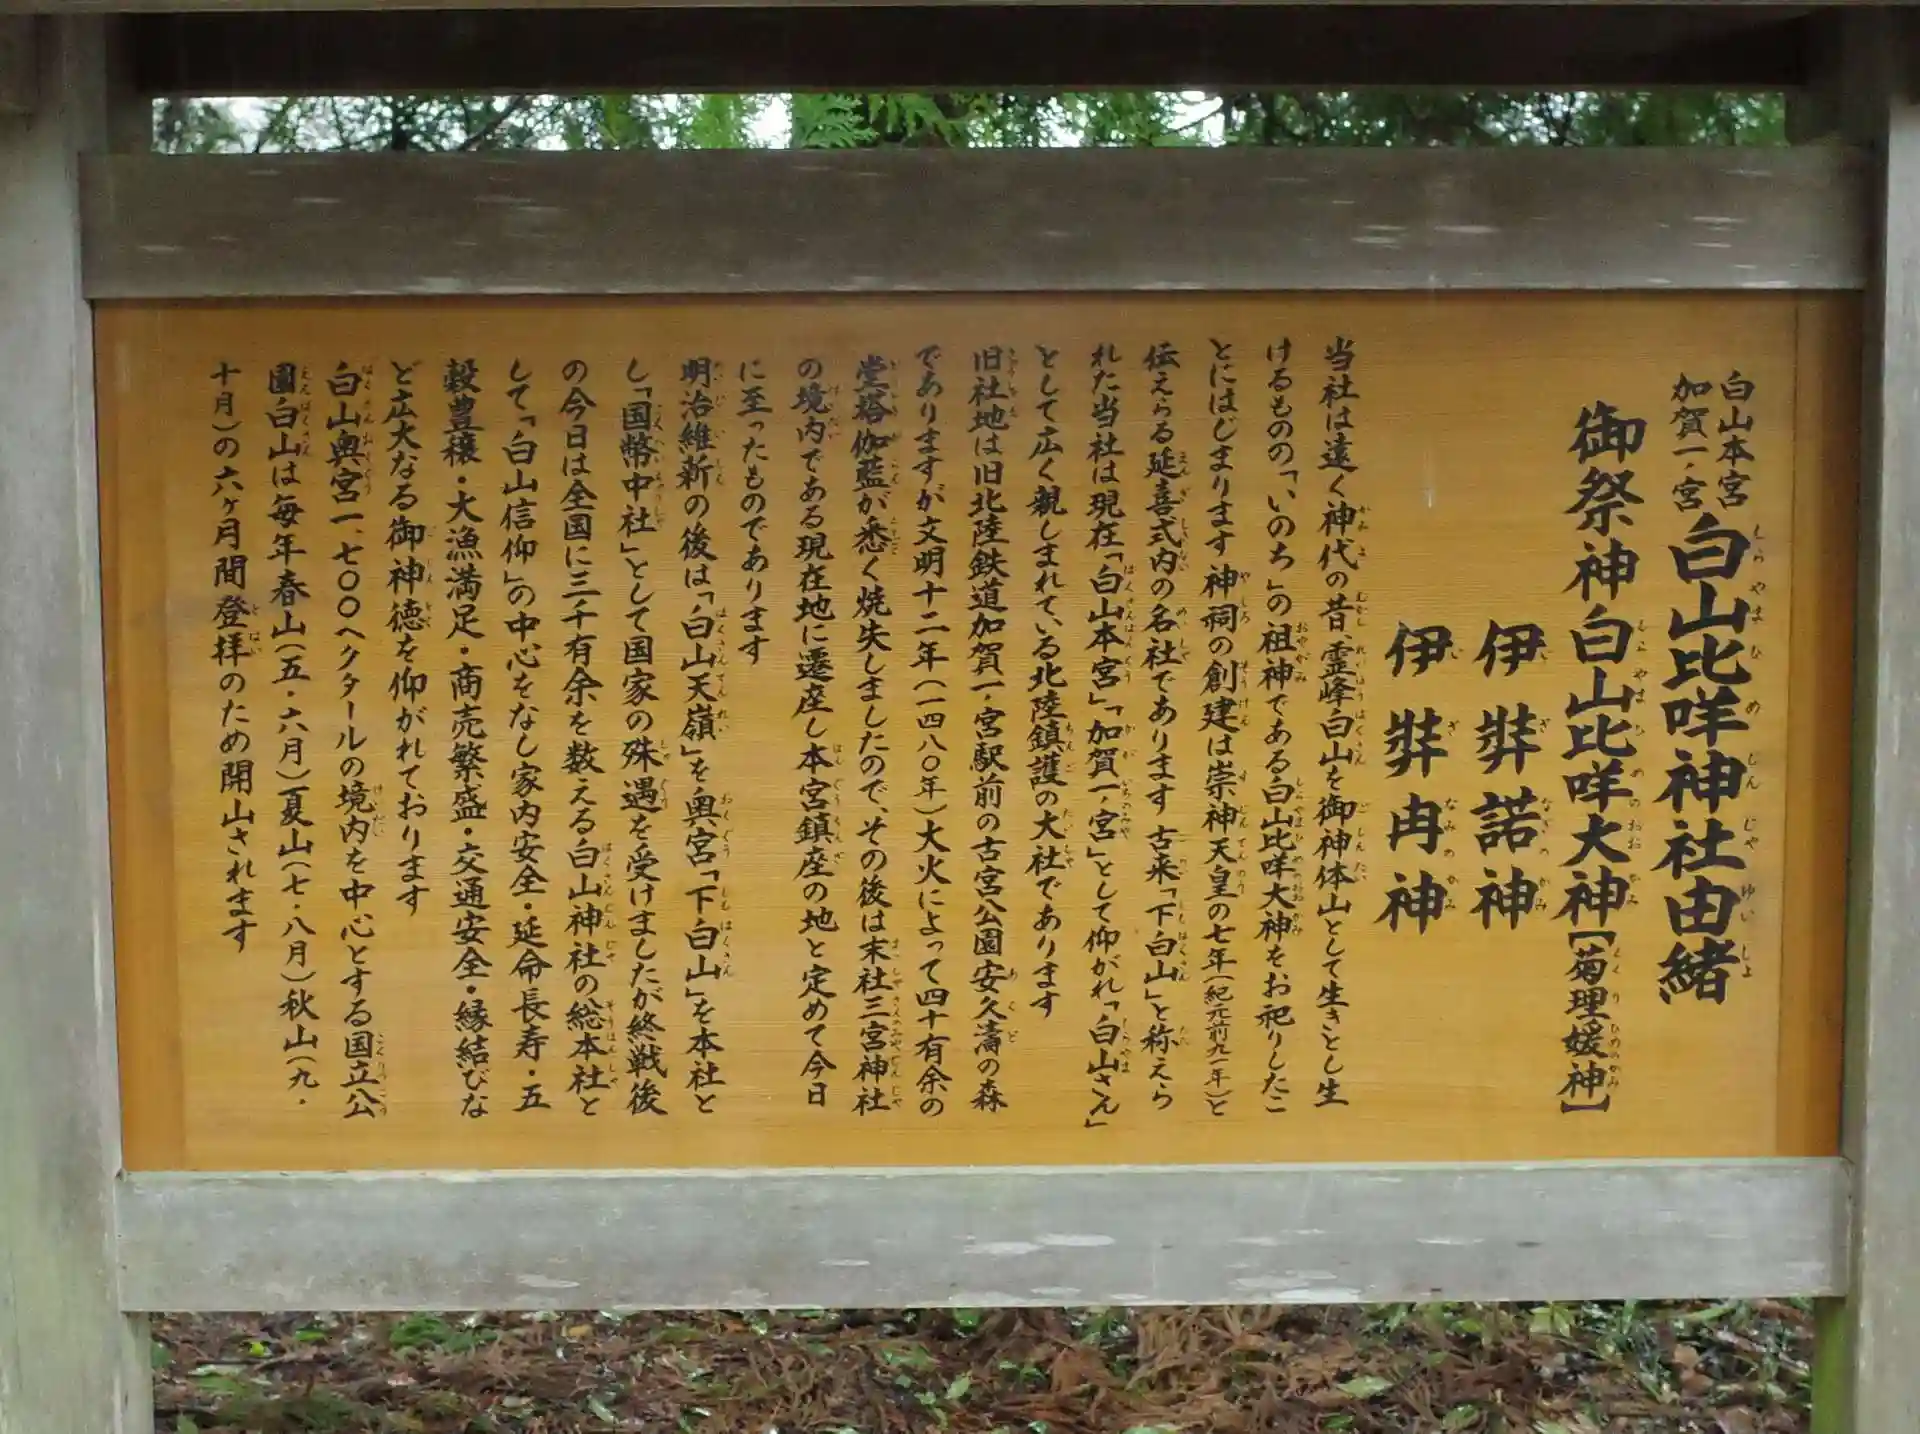 白山本宮
加賀一ノ宮
白山比咩神社由緒
御祭神 白山比咩大神【菊理媛神】
伊弉諾神
伊弉冉神
当社は遠く神代の昔、霊峰白山を御神体山として生きとし生
けるものの「いのち」の祖神である白山比咩大神をお祀りしたこ
とにはじまります 神祠の創建は崇神天皇の七年(紀元前九一年)と
伝えらる延喜式内の名社であります 古来「下白山」と称えら
れた当社は現在「白山本宮」「加賀一ノ宮」として仰がれ「白山さん」
として広く親しまれている北陸鎮護の大社であります
旧社地は旧北陸鉄道加賀一ノ宮駅前の古宮公園安久濤の森
でありますが文明十二年(一四八〇年)大火によって四十有余の
堂塔伽藍が悉く焼失しましたので、その後は末社三宮神社
の境内である現在地に遷座し本宮鎮座の地と定めて今日
に至ったものであります
明治維新の後は「白山天嶺」を奥宮「下白山」を本社と
し「国幣中社」として国家の殊遇を受けましたが終戦後
の今日は全国に三千有余を数える白山神社の総本社と
して「白山信仰」の中心をなし家内安全・延命長寿・五
穀豊穣・大漁満足・商売繁盛・交通安全・縁結びな
ど広大なる御神徳を仰がれております
白山奥宮一、七〇〇ヘクタールの境内を中心とする国立公
園白山は毎年春山(五・六月)夏山(七・八月)秋山(九・
十月)の六ヶ月間登拝のため開山されます